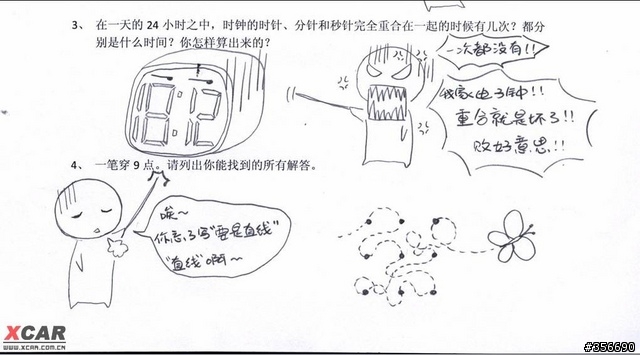 3、 在一天的 24 小时之中，时钟的时针、分针和秒针完全重合在一起的时候有几次？都分
别是什么时间？你怎样算出来的？
一次都没有!!
我家电子钟!!
重合就是坏了!!
败好意思!!
4、 一笔穿 9 点。请列出你能找到的所有解答。
唉～
你忘了写“要是直线”
“直线”啊～
XCAR
WWW.XCAR.COM.CN
#356690